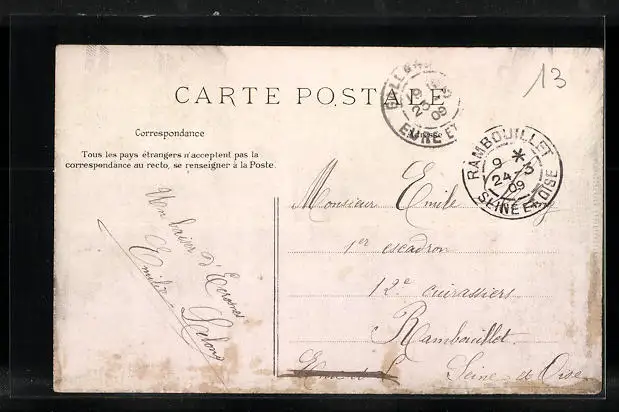 13
CARTE POSTALE
Correspondance
Adresse
Tous les pays étrangers n'acceptent pas la
correspondance au recto, se renseigner à la Poste.
EURE ET
09
RAMBOUILLET
9 *
24 - 3
09
SEINE ET OISE
Un baiser d'Ecrosnes
Emile
Monsieur Emile
1er escadron
12e cuirassiers
Rambouillet
Seine et Oise